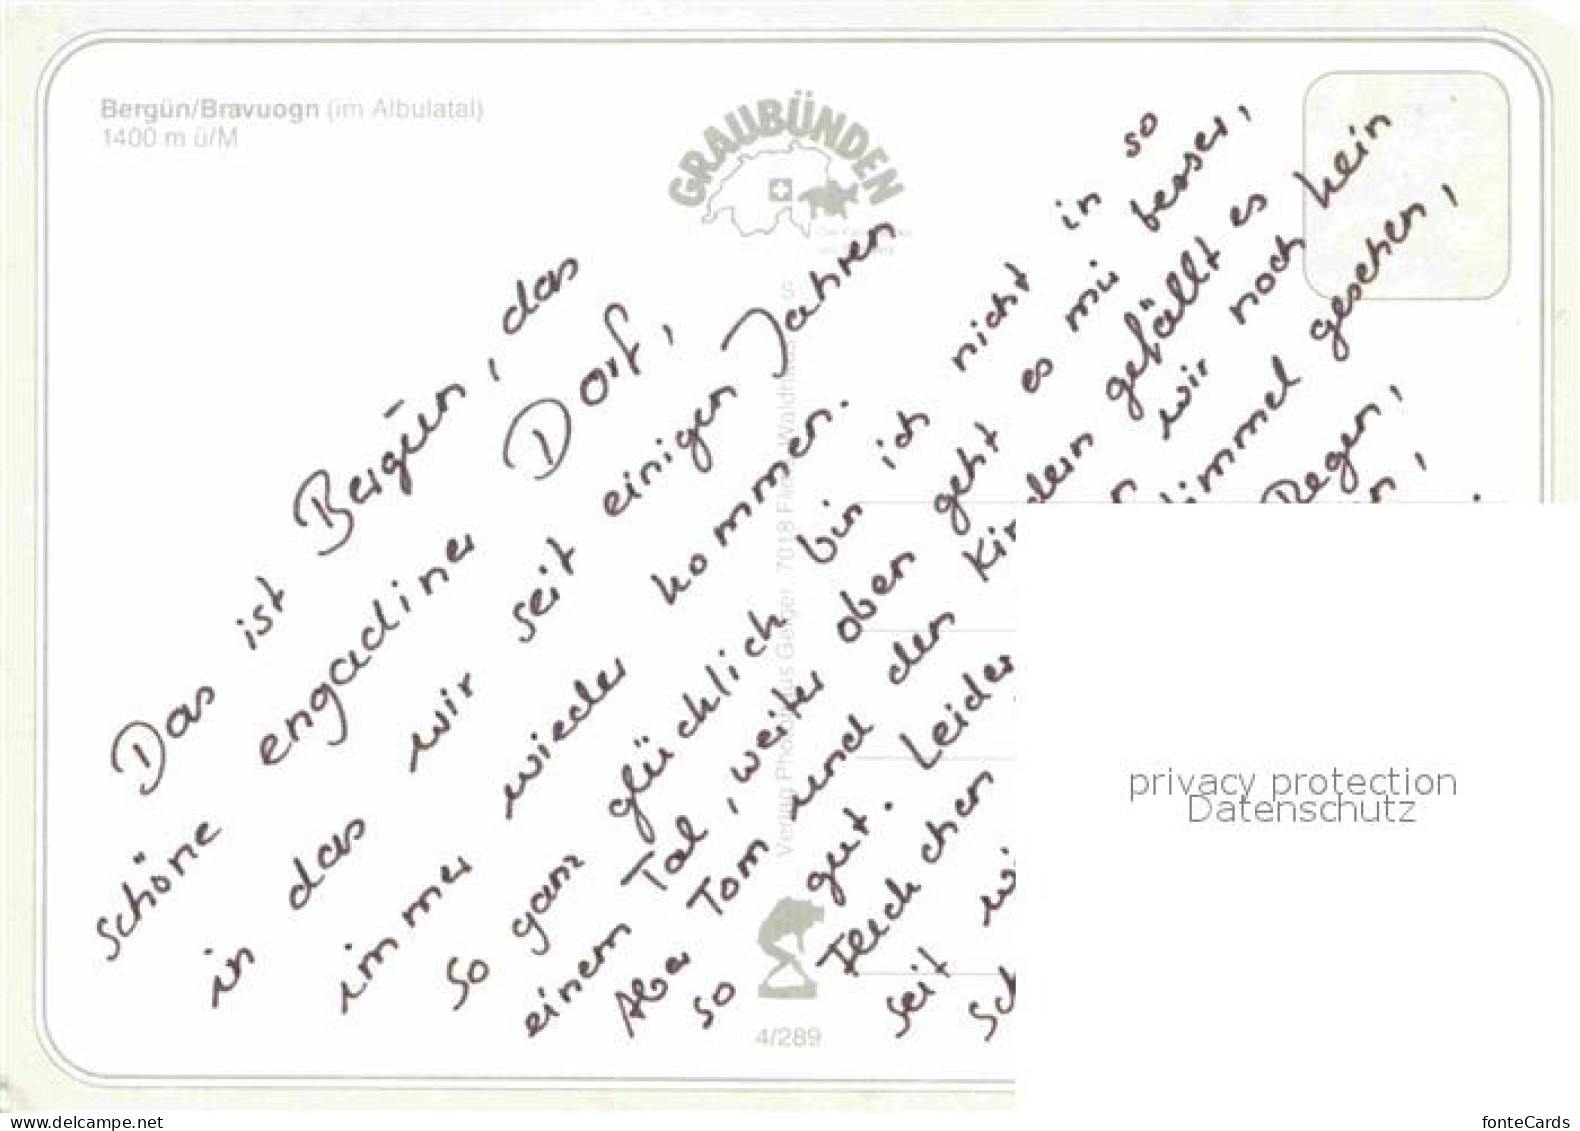 Bergün/Bravuogn (im Albulatal)
1400 m ü/M
GRAUBÜNDEN
Das ist Bergün, das
schöne engadiner Dorf,
in das wir seit einigen Jahren
immer wieder kommen.
So ganz glücklich bin ich nicht in so
einem Tal, weiter oben geht es mir besser,
Aber Tom und den Kindern gefällt es
so gut. Leider wir noch kein
Fleckchen Himmel gesehen,
seit wi Regen,
Sch
Verlag Photohaus Geiger, 7018 Flims Waldhaus
4/289
privacy protection
Datenschutz
www.delcampe.net
fonteCards